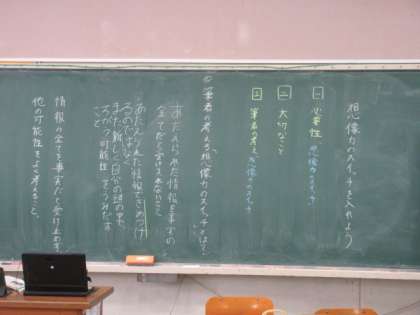 想像力のスイッチを入れよう
一 必要性 想像力のスイッチ
二 大切なこと
三 筆者の考え 想像力のスイッチ
筆者の考える「想像力のスイッチ」とは?
あたえられた情報を事実の
全てだと受け止めないこと
あたえられた情報で
るのではなく
また新しく自分の頭の中で
可能性
こと
情報の全てを事実だと受け止めず
他の可能性をよく考えること。